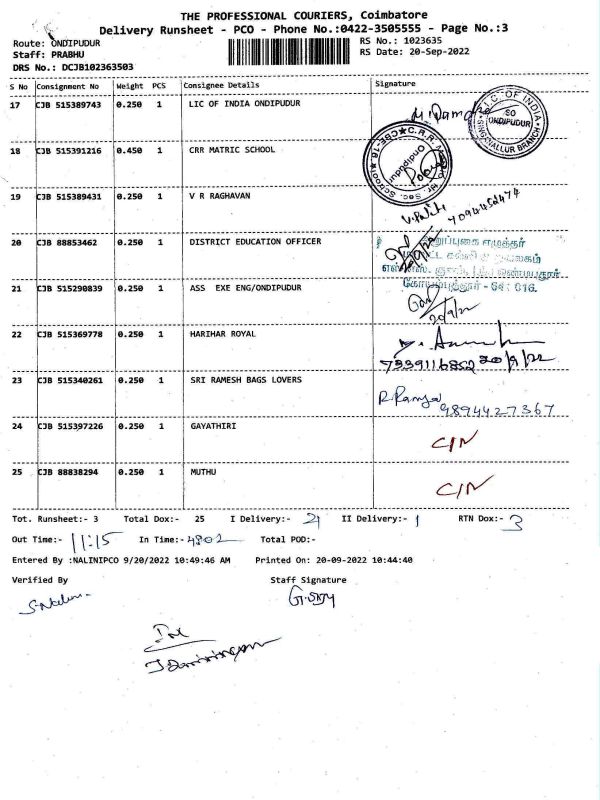 THE PROFESSIONAL COURIERS, Coimbatore
Delivery Runsheet - PCO - Phone No.:0422-3505555 - Page No.:3
Route: ONDIPUDUR
RS No.: 1023635
Staff: PRABHU
RS Date: 20-Sep-2022
DRS No.: DCJB102363503
S No Consignment No Weight PCS Consignee Details Signature
17 CJB 515389743 0.250 1 LIC OF INDIA ONDIPUDUR
L.I.C. OF INDIA SO ONDIPUDUR SINGANALLUR BRANCH
18 CJB 515391216 0.450 1 CRR MATRIC SCHOOL
19 CJB 515389431 0.250 1 V R RAGHAVAN
20 CJB 88853462 0.250 1 DISTRICT EDUCATION OFFICER
21 CJB 515290839 0.250 1 ASS EXE ENG/ONDIPUDUR
20/9/22
22 CJB 515369778 0.250 1 HARIHAR ROYAL
7339116852 20/9/22
23 CJB 515340261 0.250 1 SRI RAMESH BAGS LOVERS
R.Ramya 9894427367
24 CJB 515397226 0.250 1 GAYATHIRI C/N
25 CJB 88838294 0.250 1 MUTHU C/N
Tot. Runsheet:- 3 Total Dox:- 25 I Delivery:- 21 II Delivery:- 1 RTN Dox:- 3
Out Time:- 11:15 In Time:- Total POD:-
Entered By :NALINIPCO 9/20/2022 10:49:46 AM Printed On: 20-09-2022 10:44:40
Verified By Staff Signature